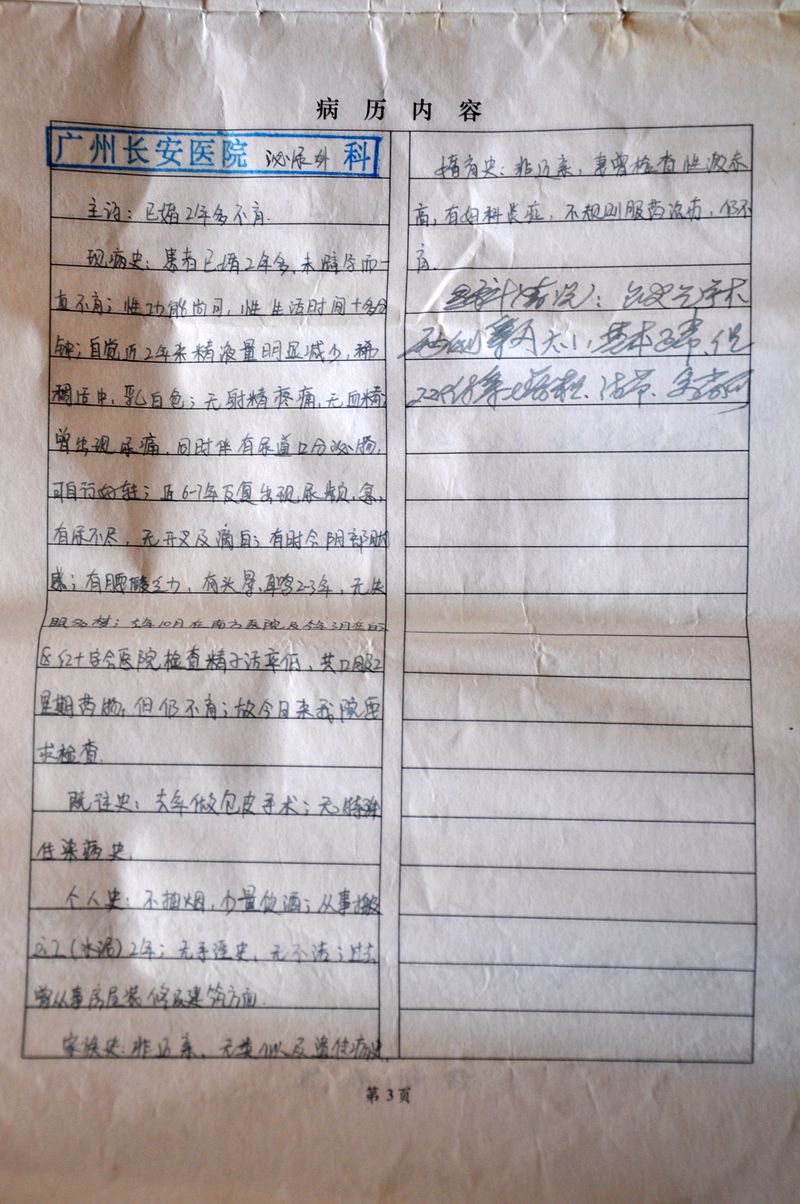 病历内容
广州长安医院 泌尿外 科
主诉：已婚2年多不育.
现病史：患者已婚2年多,未避孕而一
直不育；性功能尚可，性生活时间十多分
钟；自觉近2年来精液量明显减少，稀
稠适中，乳白色；无射精疼痛，无血精；
曾出现尿痛，同时伴有尿道口分泌物，
可自行好转；近6-7年反复出现尿频，急，
有尿不尽，无开叉及滴白；有时会阴部胀
感；有腰酸乏力，有头晕，耳鸣2-3年，无失
眠多梦；去年10月在南方医院及今年3月在
区红十字会医院检查精子活率低，共口服2
星期药物，但仍不育；故今日来我院要
求检查.
既往史：去年做包皮手术；无特殊
传染病史.
个人史：不抽烟，少量饮酒；从事搬
运工(水泥)2年；无手淫史，无不洁；过去
曾从事房屋装修及建筑方面.
家族史：非近亲，无类似及遗传病史.
婚育史：非近亲，妻曾检查性激素
高，有妇科炎症，不规则服药治疗，仍不
育.
第3页